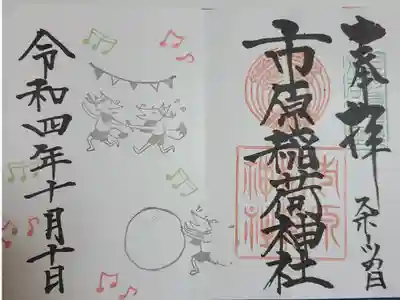 奉拝
スポーツの日
市原稲荷神社
令和四年十月十日